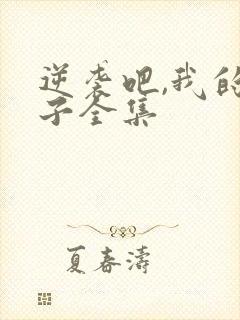 逆袭吧,我的
子全集
夏春涛